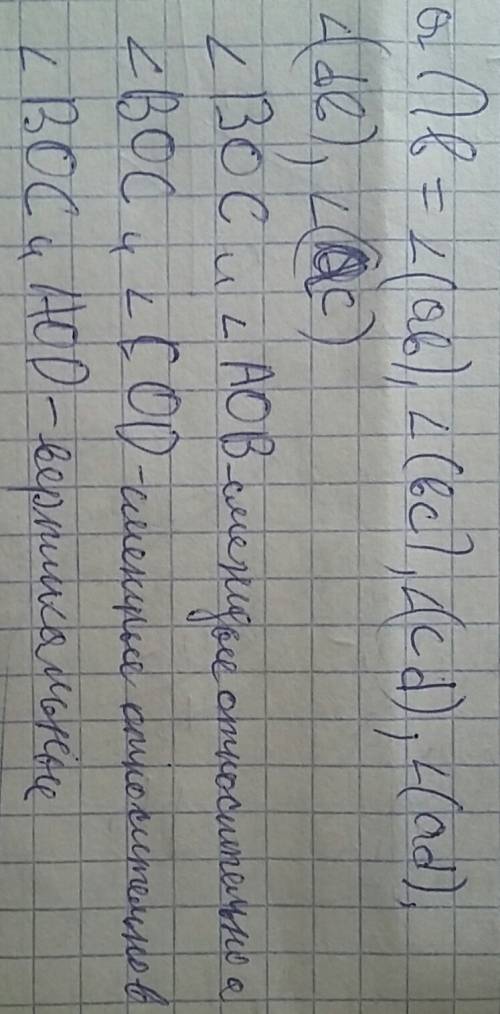 a ∩ b = ∠(ab), ∠(bc), ∠(cd), ∠(ad),
∠(db), ∠(ac)
∠ BOC и ∠ AOB - смежные относительно a
∠ BOC и ∠ COD - смежные относительно b
∠ BOC и AOD - вертикальные